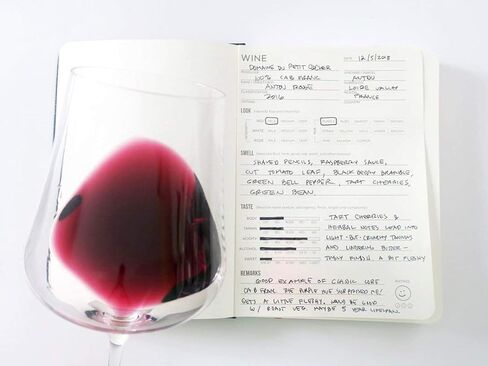 WINE
DATE 12/5/2018
DOMAINE DU PETIT
100% CAB FRANC
ANJOU
ANJOU ROUGE
LOIRE VALLEY
2016
FRANCE
LOOK
RED
WHITE
SMELL
SHAVED PENCILS, RASPBERRY SAUCE,
CUT TOMATO LEAF, BLACKBERRY BRAMBLE,
GREEN BELL PEPPER, TART CHERRIES,
GREEN BEAN.
TASTE
BODY
TANNIN
ACIDITY
ALCOHOL
SWEET
TART CHERRIES &
HERBAL NOTES LEAD INTO
LIGHT-BUT-CRUNCHY TANNINS
AND LINGERING BITTER-
TANGY FINISH. A BIT FLESHY
REMARKS
GOOD EXAMPLE OF CLASSIC LOIRE
CAB FRANC. THE PURPLE HUE SURPRISED ME!
GETS A LITTLE FLESHY. WOULD BE GOOD
W/ ROAST VEG. MAYBE 5 YEAR LIFESPAN.